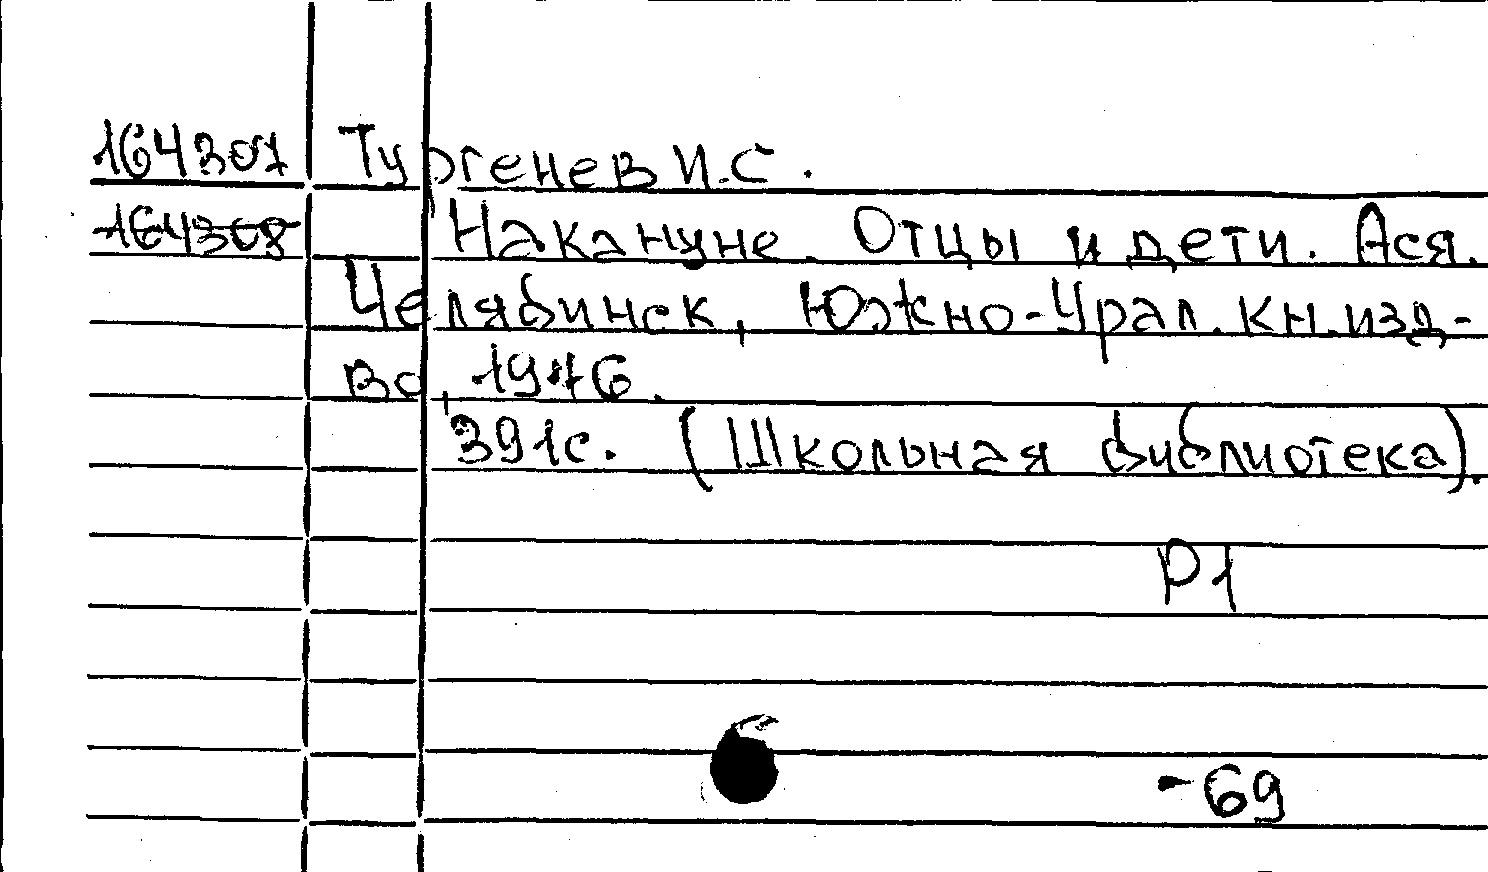 164307 Тургенев И.С.
164308 Накануне. Отцы и дети. Ася.
Челябинск, Южно-Урал. кн. изд-
во, 1976.
391с. (Школьная библиотека).
Р1
-69